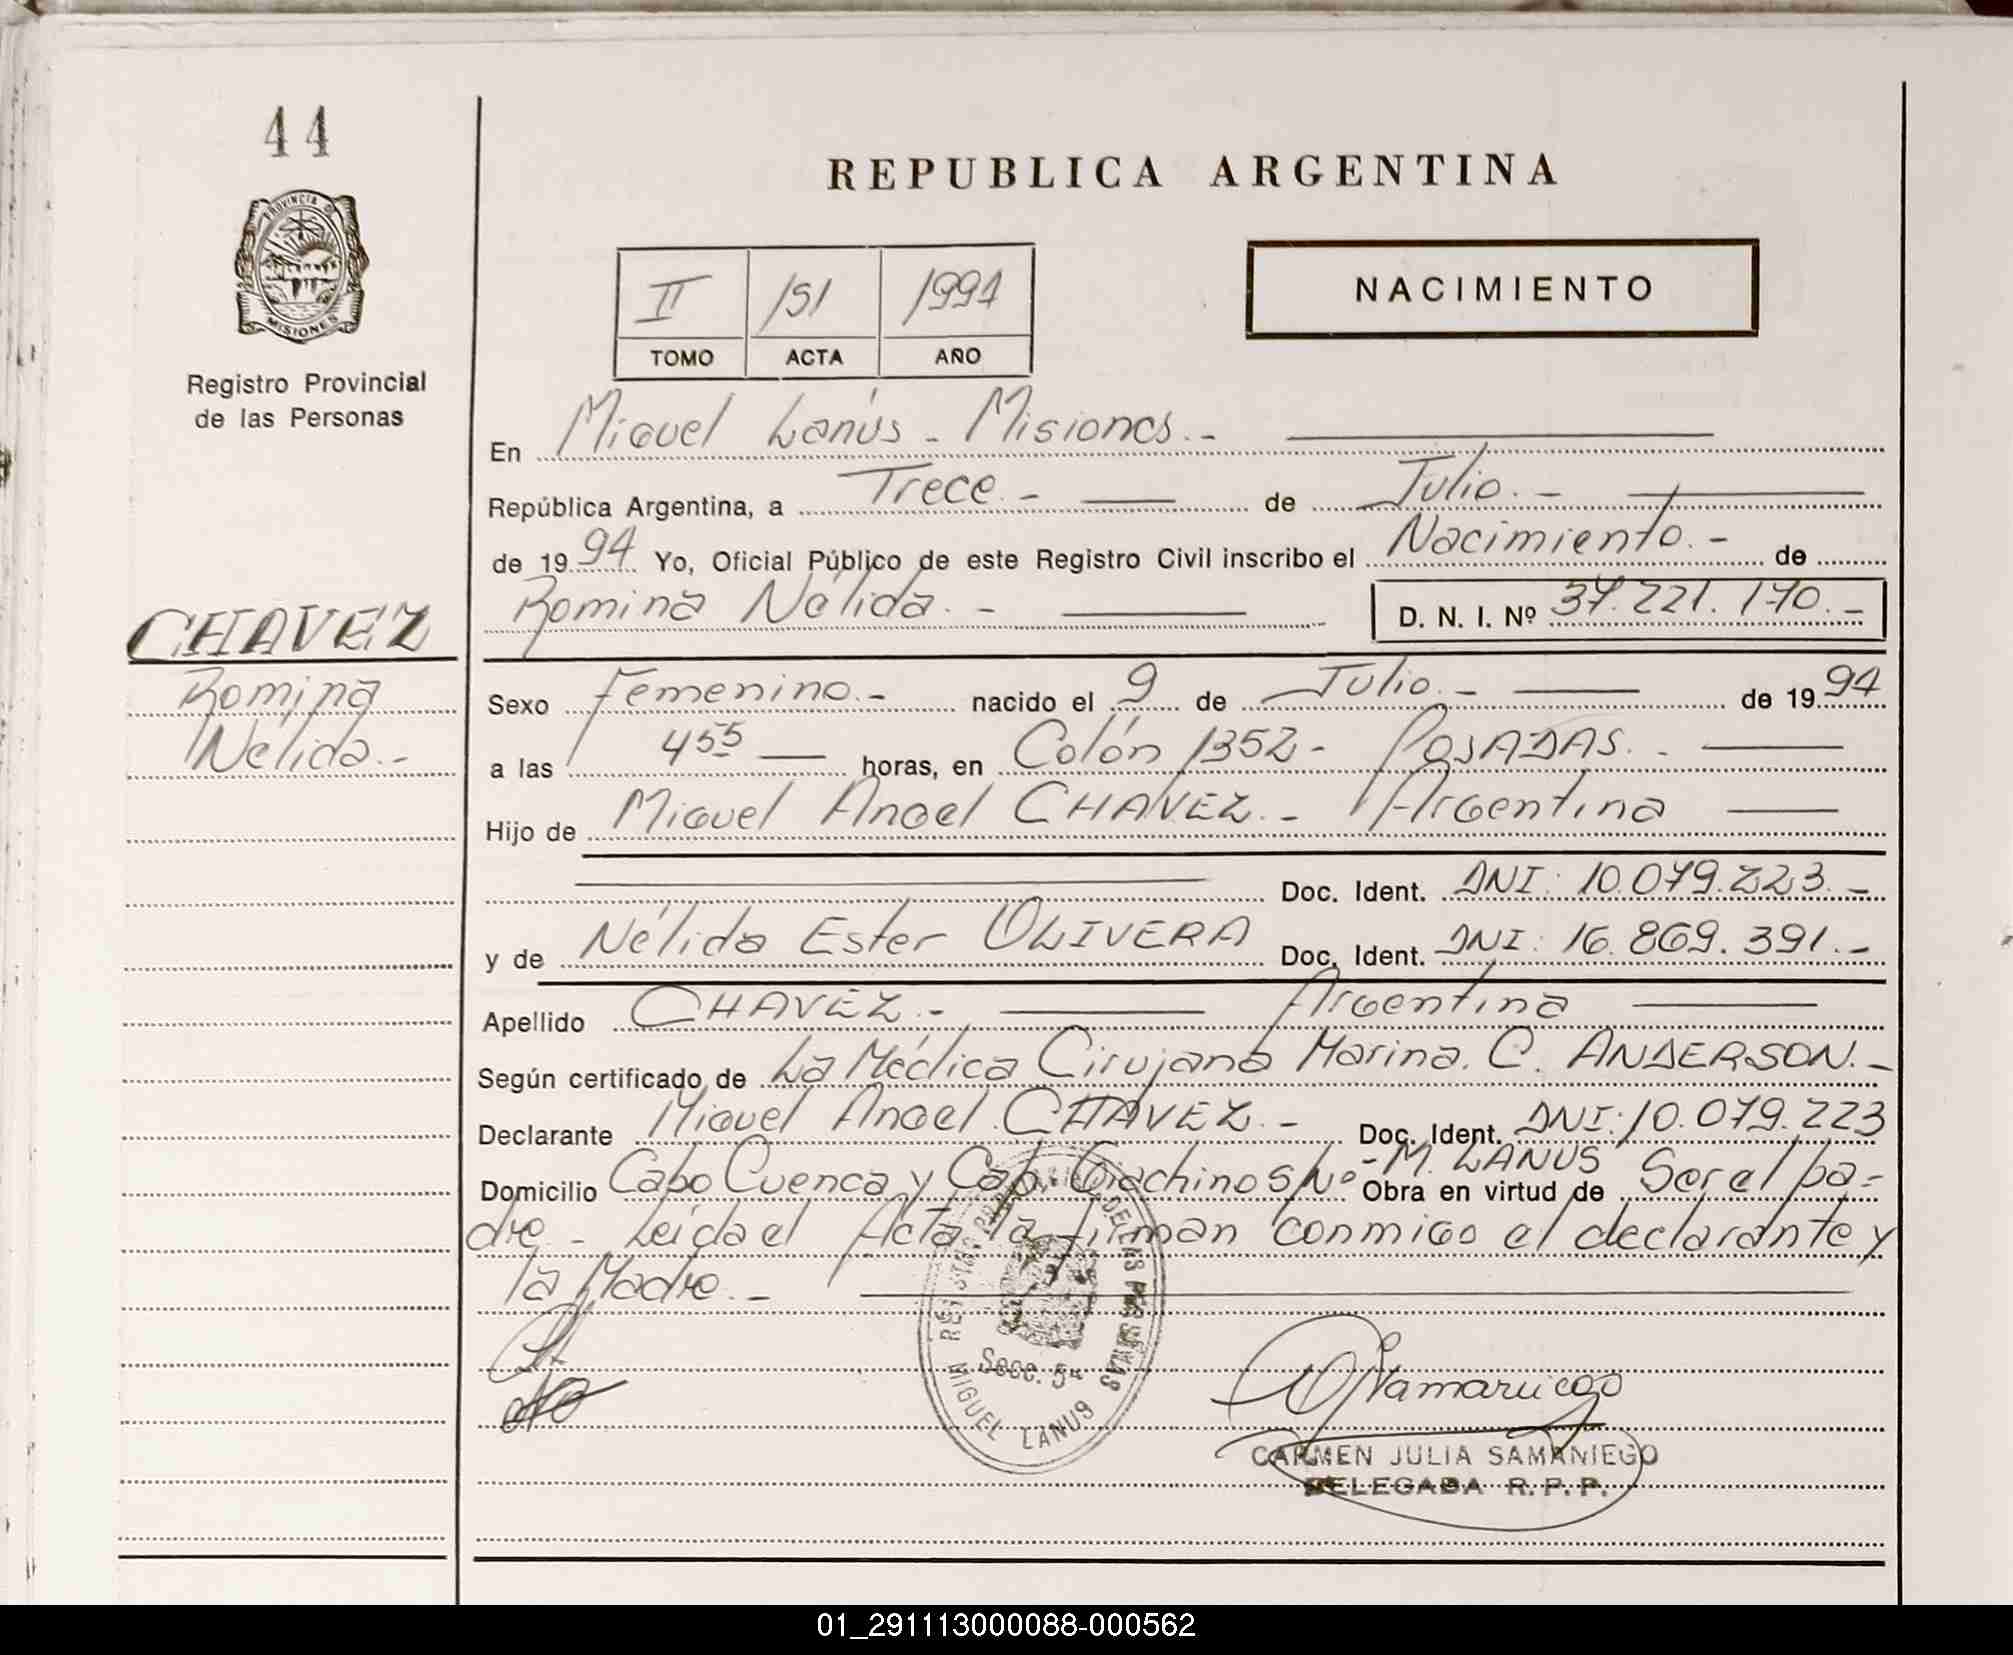 44
PROVINCIA DE
MISIONES
Registro Provincial
de las Personas
REPUBLICA ARGENTINA
II 151 1994
TOMO ACTA AÑO
NACIMIENTO
En Miguel Lanús - Misiones.-
República Argentina, a Trece.- de Julio.-
de 1994 Yo, Oficial Público de este Registro Civil inscribo el Nacimiento.- de
Romina Nélida.- D. N. I. Nº 37.221.170.-
CHAVEZ
Romina
Nélida.-
Sexo Femenino.- nacido el 9 de Julio.- de 1994
a las 4 55 horas, en Colón 1352- POSADAS.-
Hijo de Miguel Angel CHAVEZ.- Argentina
Doc. Ident. DNI: 10.079.223.-
y de Nélida Ester OLIVERA Doc. Ident. DNI: 16.869.391.-
Apellido CHAVEZ.- Argentina
Según certificado de La Médica Cirujana Marina. C. ANDERSON.-
Declarante Miguel Angel CHAVEZ.- Doc. Ident. DNI: 10.079.223
Domicilio Cabo Cuenca y Cabo S/Nº - M. LANUS Obra en virtud de Ser el pa-
dre - Leída el Acta la firman conmigo el declarante y
la Madre.-
REGISTRO PROVINCIAL DE LAS PERSONAS
Secc. 5ª
MIGUEL LANUS
CARMEN JULIA SAMANIEGO
DELEGADA R. P. P.
01_291113000088-000562